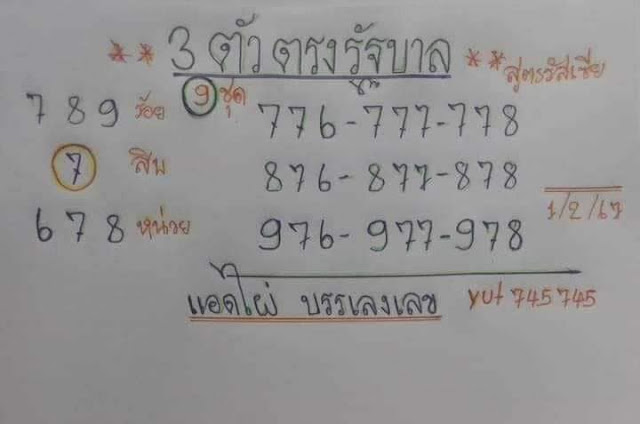 ** 3 ตัวตรงรัฐบาล ** สูตรรัสเซีย
789 ร้อย 9 ชุด 776-777-778
7 สิบ 876-877-878
678 หน่วย 976-977-978
1/2/67
แอดไผ่ บรรเลงเลข yut 745745